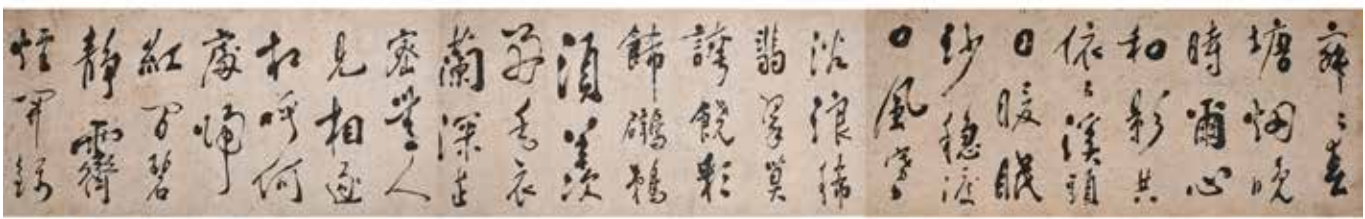 春
塘烟晚
時爾心
和影共
依〻溪頭
日暖眠
沙穩渡
口風寒
浴浪稀
翡翠莫
誇饒彩
飾鸂鶒
須羨
好毛衣
蘭深芷
密無人
見相逐
相呼何
處歸
紅間碧
靜霽
煙開錦